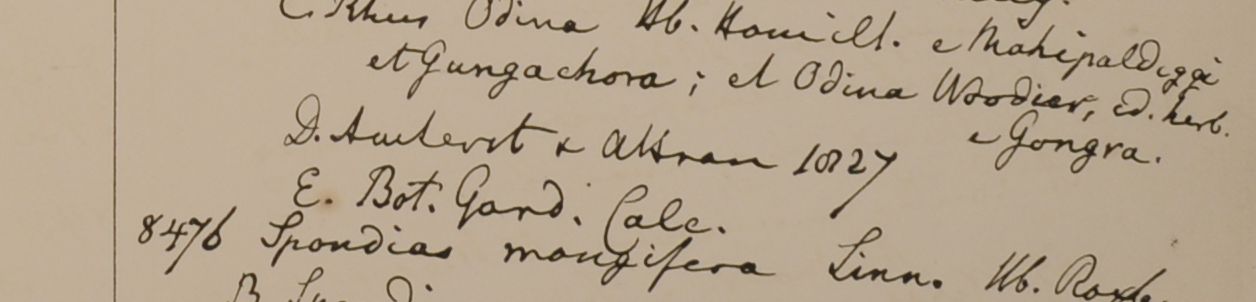 C. Rhus Odina Hb. Hamill. e Mahipaldiggi
et Gungachora; et Odina Woodier, ed. herb.
e Gongra.
D. Amherst & Attran 1827
E. Bot. Gard. Calc.
8476 Spondias mangifera Linn. Hb. Roxb.
B